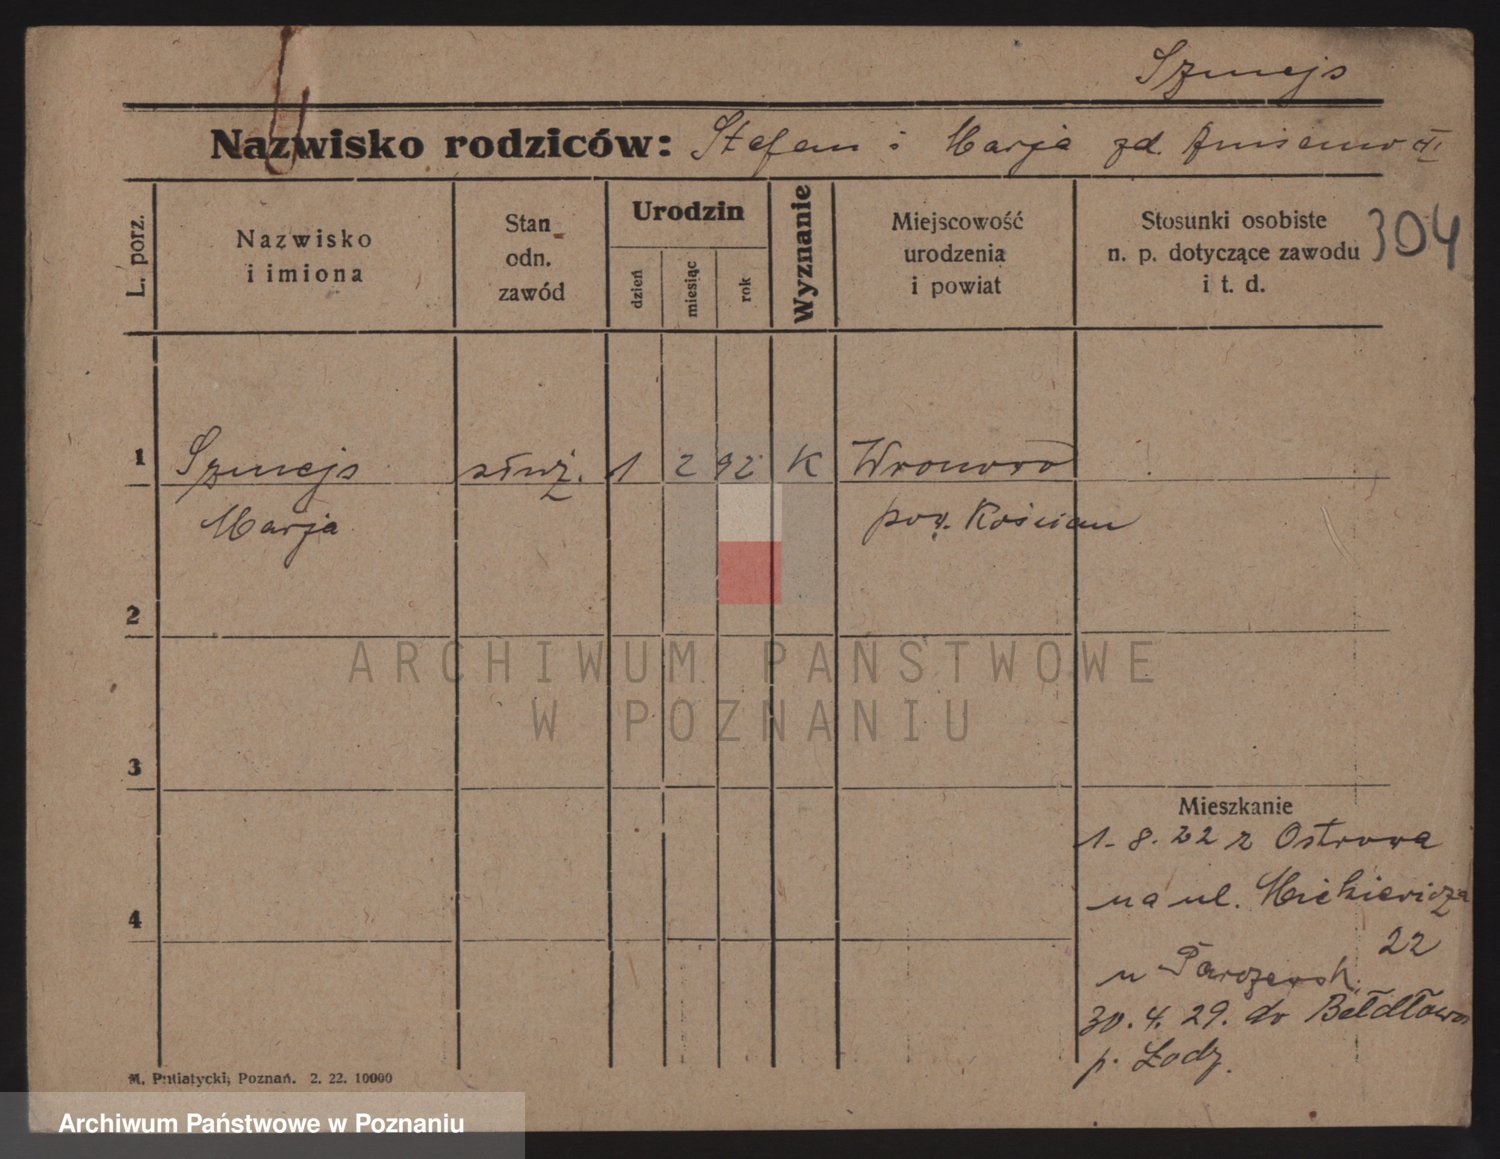 Szmejs
Nazwisko rodziców: Stefan i Marja zd.
L. porz.
Nazwisko
i imiona
Stan
odn.
zawód
Urodzin
dzień
miesiąc
rok
Wyznanie
Miejscowość
urodzenia
i powiat
Stosunki osobiste
n. p. dotyczące zawodu
i t. d.
304
1 Szmejs służ. 1 2 92 K Wronowo
Marja pow. Kościan
2
ARCHIWUM PAŃSTWOWE
W POZNANIU
3
Mieszkanie
1. 8. 22 z Ostrowa
na ul. Mickiewicza
4
22
u
30. 4. 29. do
p. Łodz.
M. Putiatycki, Poznań. 2. 22. 10000
Archiwum Państwowe w Poznaniu